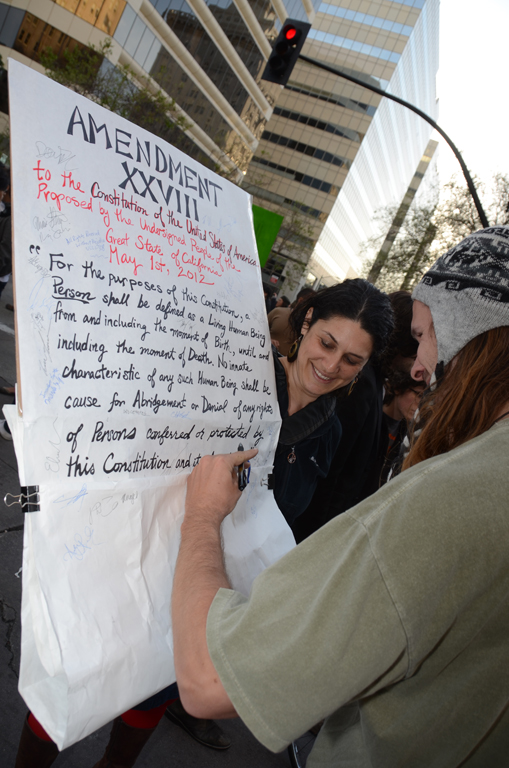 AMENDMENT
XXVIII
to the Constitution of the United States of America
Proposed by the Undersigned People of the
Great State of California
May 1st, 2012
"For the purposes of this Constitution, a
Person shall be defined as a Living Human Being
from and including the moment of Birth, until and
including the moment of Death. No innate
characteristic of any such Human Being shall be
cause for Abridgement or Denial of any rights
of Persons conferred or protected by
this Constitution and it